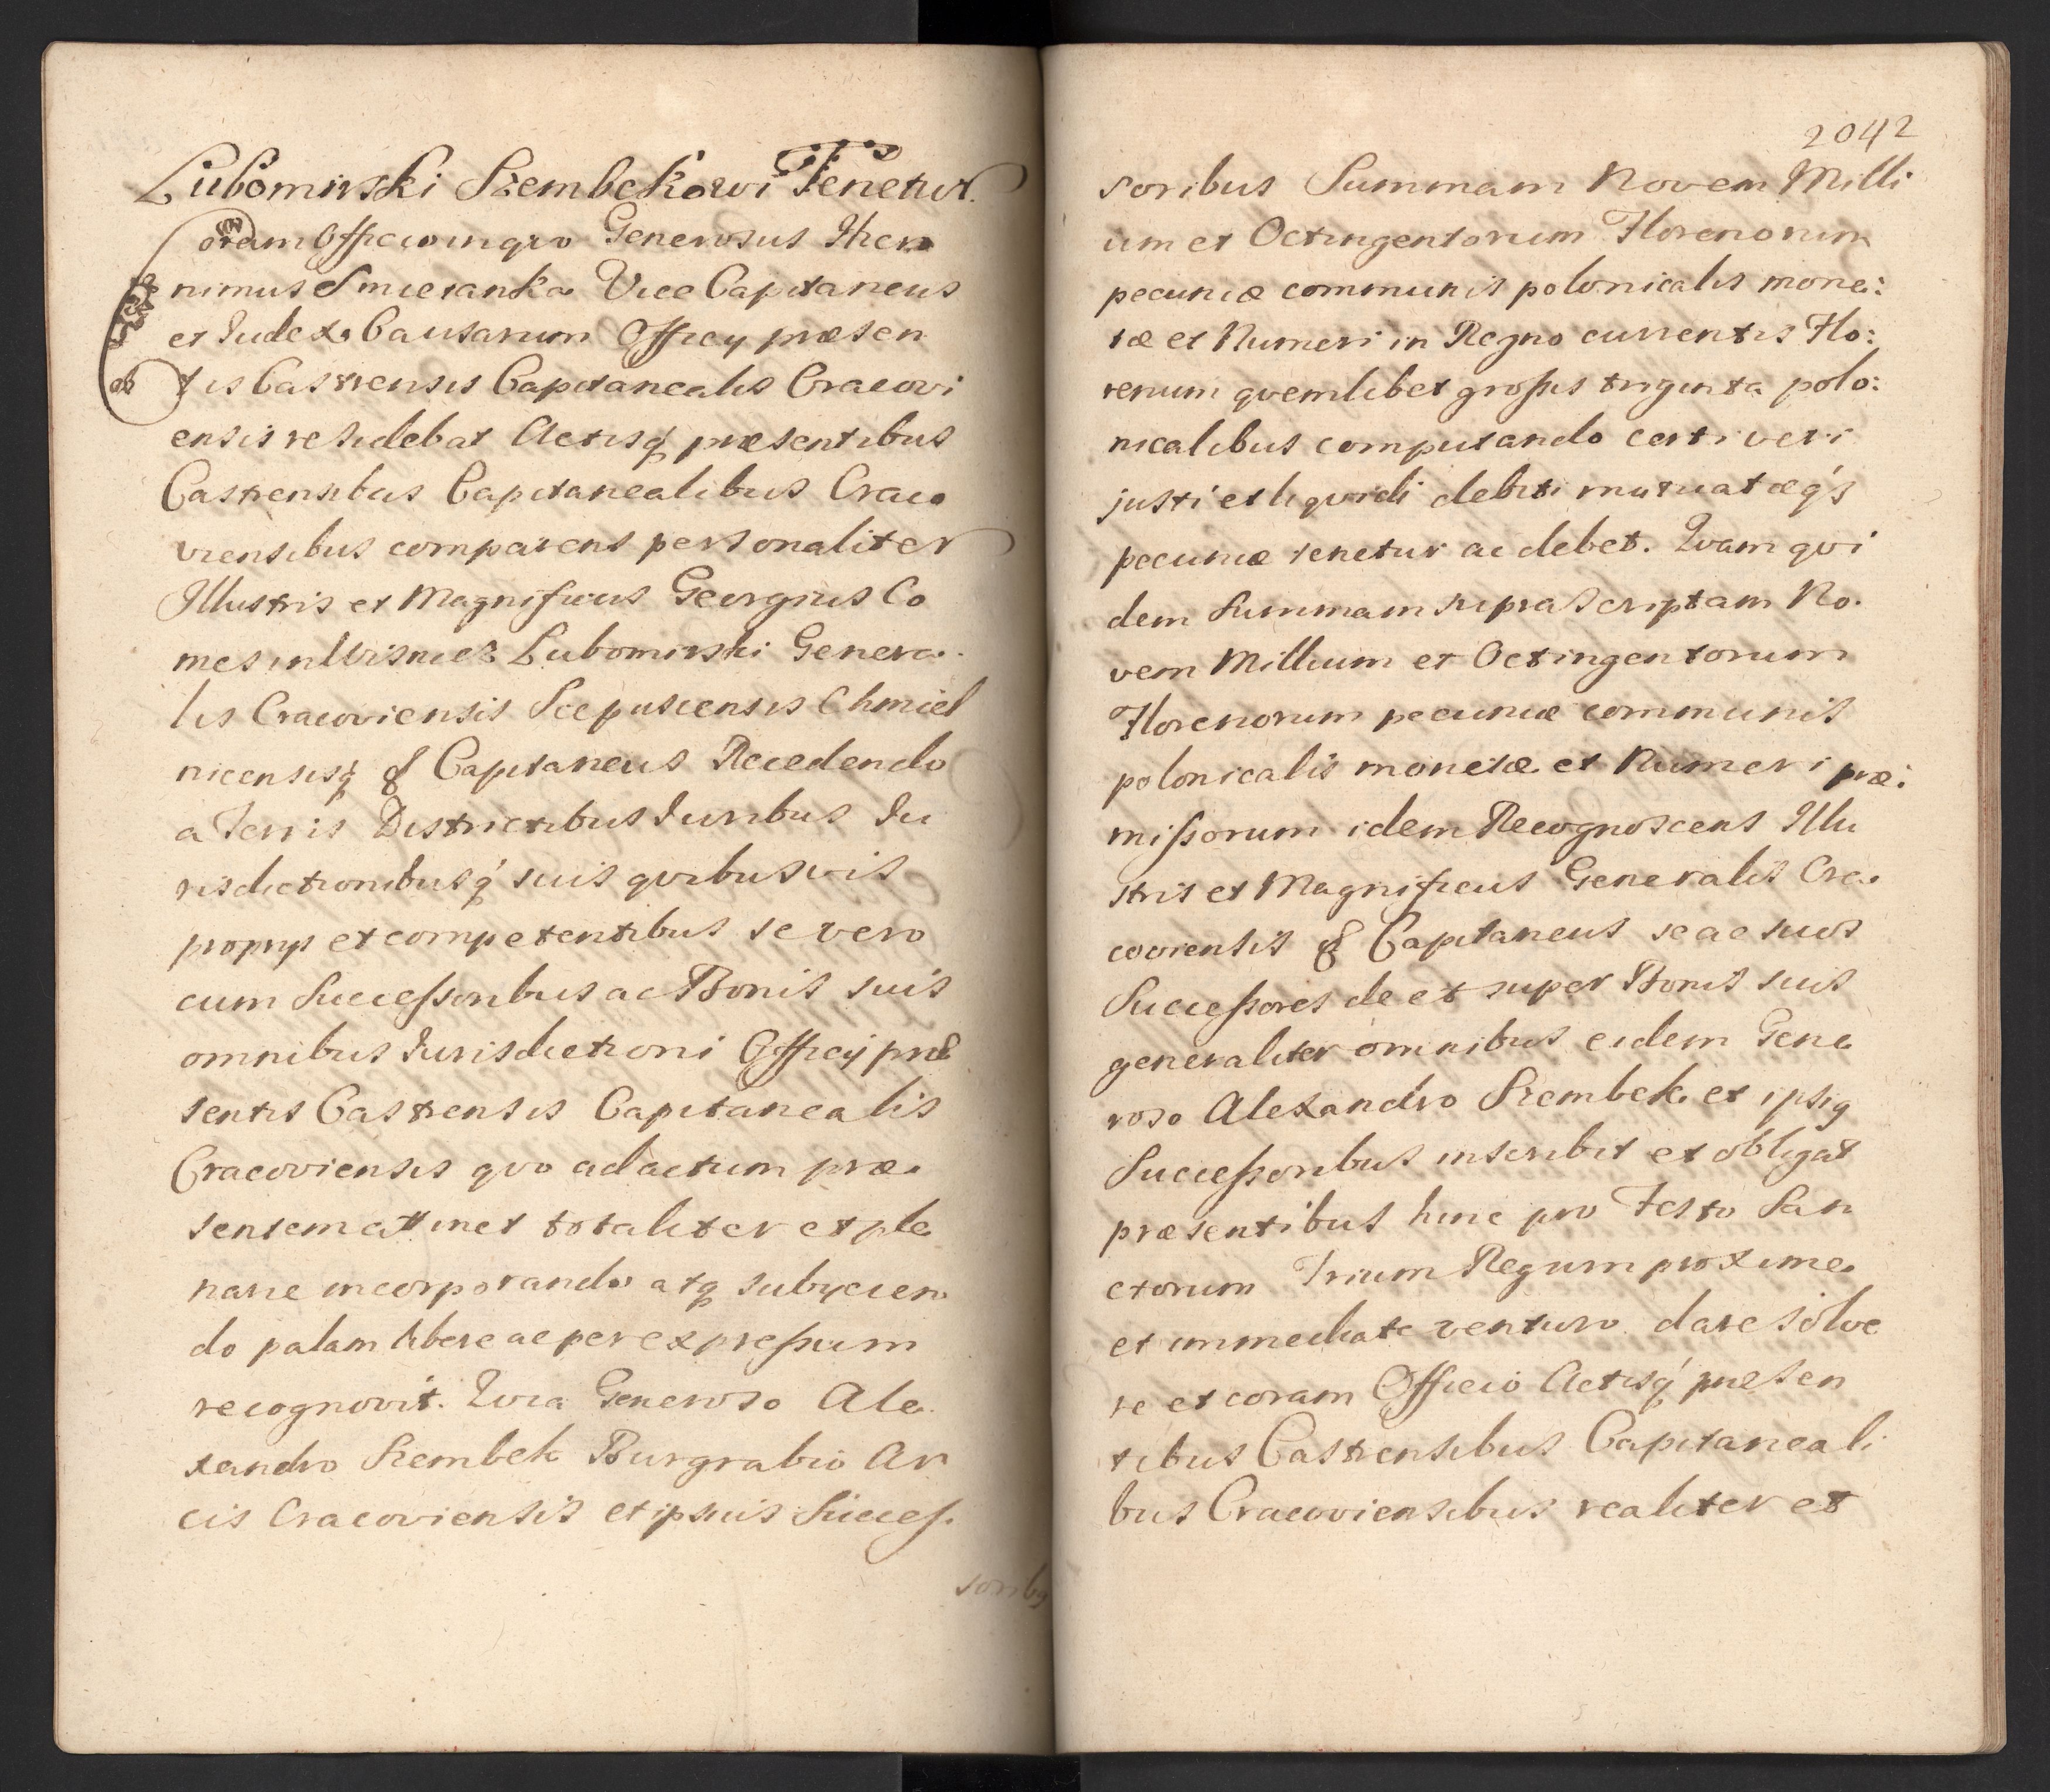 Lubomirski Szembekowi Tenetur.
Coram Officio in qvo Generosus Hiero
nimus Smietanka Vice Capitaneus
et Iudex Causarum Officy præsen
tis Castrensis Capitanealis Cracovi
ensis residebat Actisq́ præsentibus
Castrensibus Capitanealibus Craco
viensibus comparens personaliter
Illustris et Magnificus Georgius Co
mes in Wisnicz Lubomirski Genera
lis Cracoviensis Scepusiensis Chmiel
nicensisq́ & Capitaneus Recedendo
a Terris Districtibus Iuribus Iu
risdictionibusq́ suis qvibusvis
proprys et competentibus se vero
cum Successoribus ac Bonis suis
omnibus Iurisdictioni Officij præ
sentis Castrensis Capitanealis
Cracoviensis qvo ad actum præ
sentem attinet totaliter et ple
narie incorporando atq subycien
do palam libere ac per expressum
recognovit. Qvia Generoso Ale
xandro Szembek Burgrabio Ar
cis Cracoviensis et ipsius Succes
soribg
2042
soribus Summam Novem Milli
um et Octingentorum Florenorum
pecuniæ communis polonicalis mone:
tæ et Numeri in Regno currentis Flo:
renum qvemlibet grossis triginta polo:
nicalibus computando certi veri
justi et liqvidi debiti mutuatæq́
pecuniæ tenetur ac debet. Qvam qvi
dem Summam suprascriptam No
vem Millium et Octingentorum
Florenorum pecuniæ communis
polonicalis monetæ et Numeri præ:
missorum idem Recognoscens Illu
stris et Magnificus Generalis Cra
coviensis & Capitaneus se ac suos
Successores de et super Bonis suis
generaliter omnibus eidem Gene
roso Alexandro Szembek et ipsig
Successoribus inscribit et obligat
præsentibus hinc pro Festo San
ctorum Trium Regum proxime
et immediate venturo dare solve
re et coram Officio Actisq́ præsen
tibus Castrensibus Capitaneali
bus Cracoviensibus realiter et